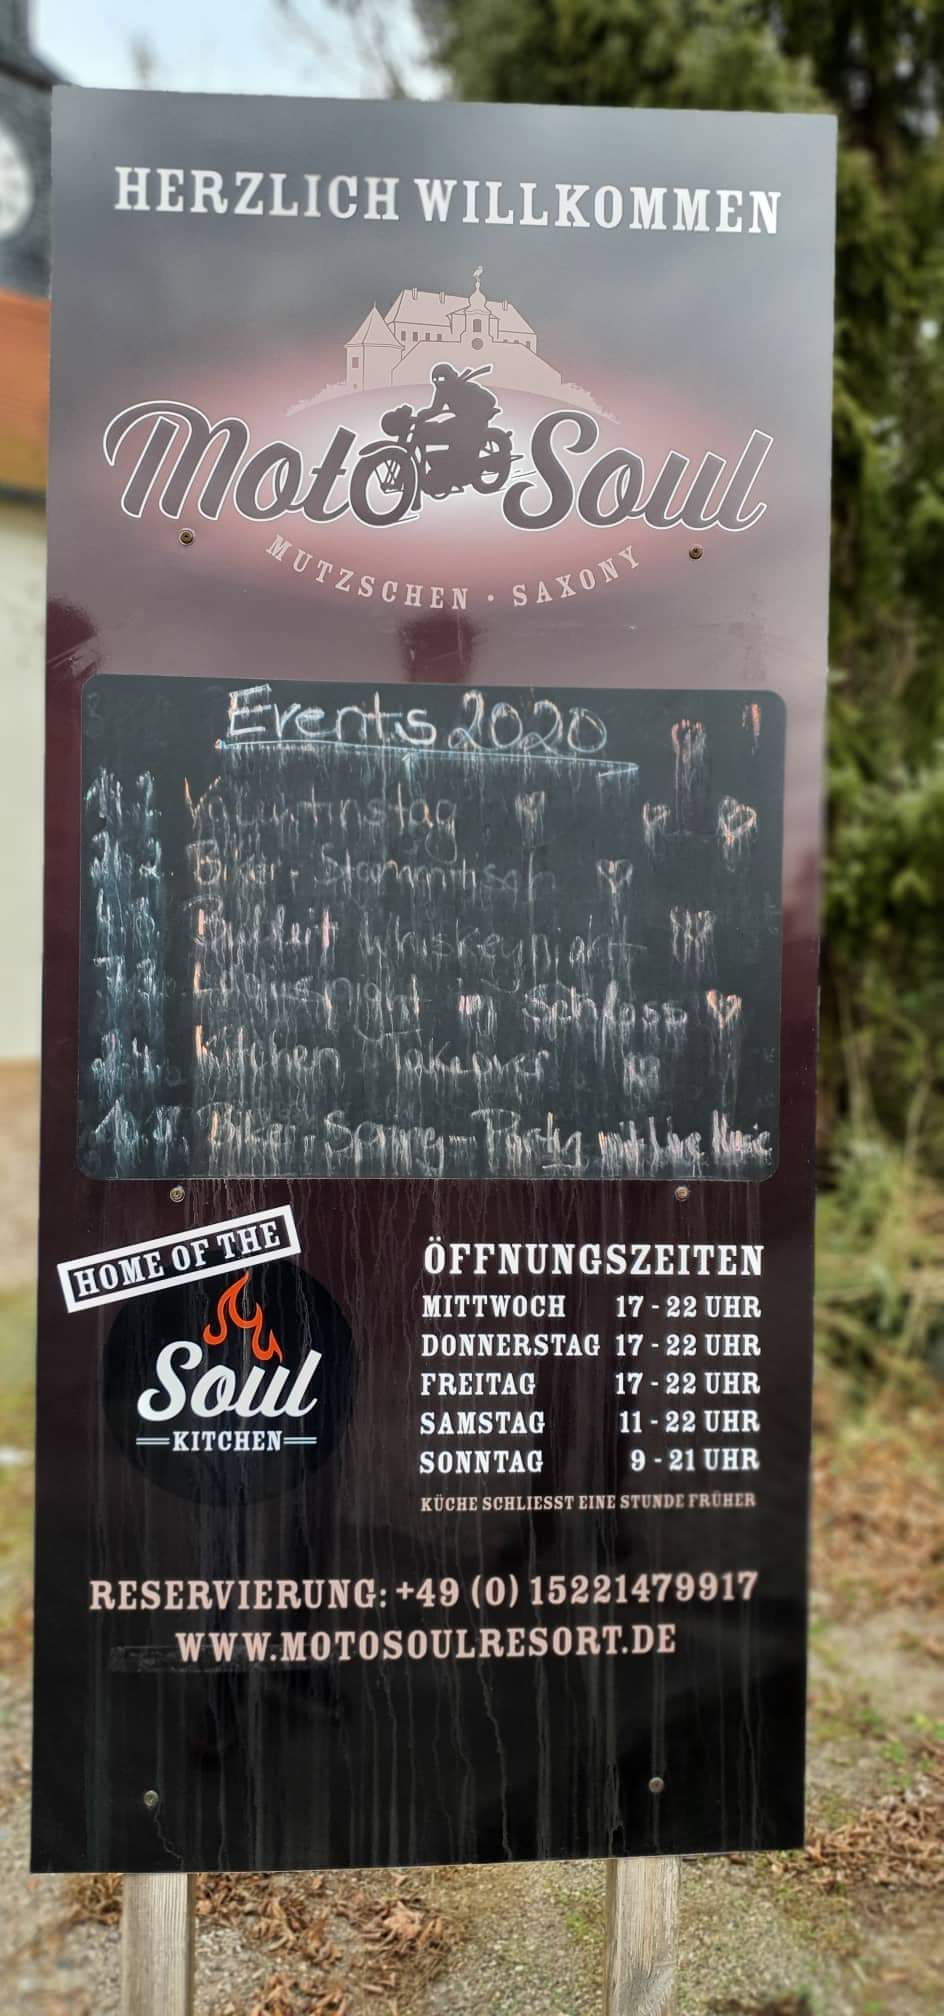 HERZLICH WILLKOMMEN
Moto Soul
MUTZSCHEN · SAXONY
Events 2020
14.2. Valentinstag
Biker-Stammtisch
Bulleit Whiskeynight
night im Schloss
Kitchen Takeover
Biker-Spring-Party mit Live Music
HOME OF THE
Soul
KITCHEN
ÖFFNUNGSZEITEN
MITTWOCH 17 - 22 UHR
DONNERSTAG 17 - 22 UHR
FREITAG 17 - 22 UHR
SAMSTAG 11 - 22 UHR
SONNTAG 9 - 21 UHR
KÜCHE SCHLIESST EINE STUNDE FRÜHER
RESERVIERUNG: +49 (0) 15221479917
WWW.MOTOSOULRESORT.DE